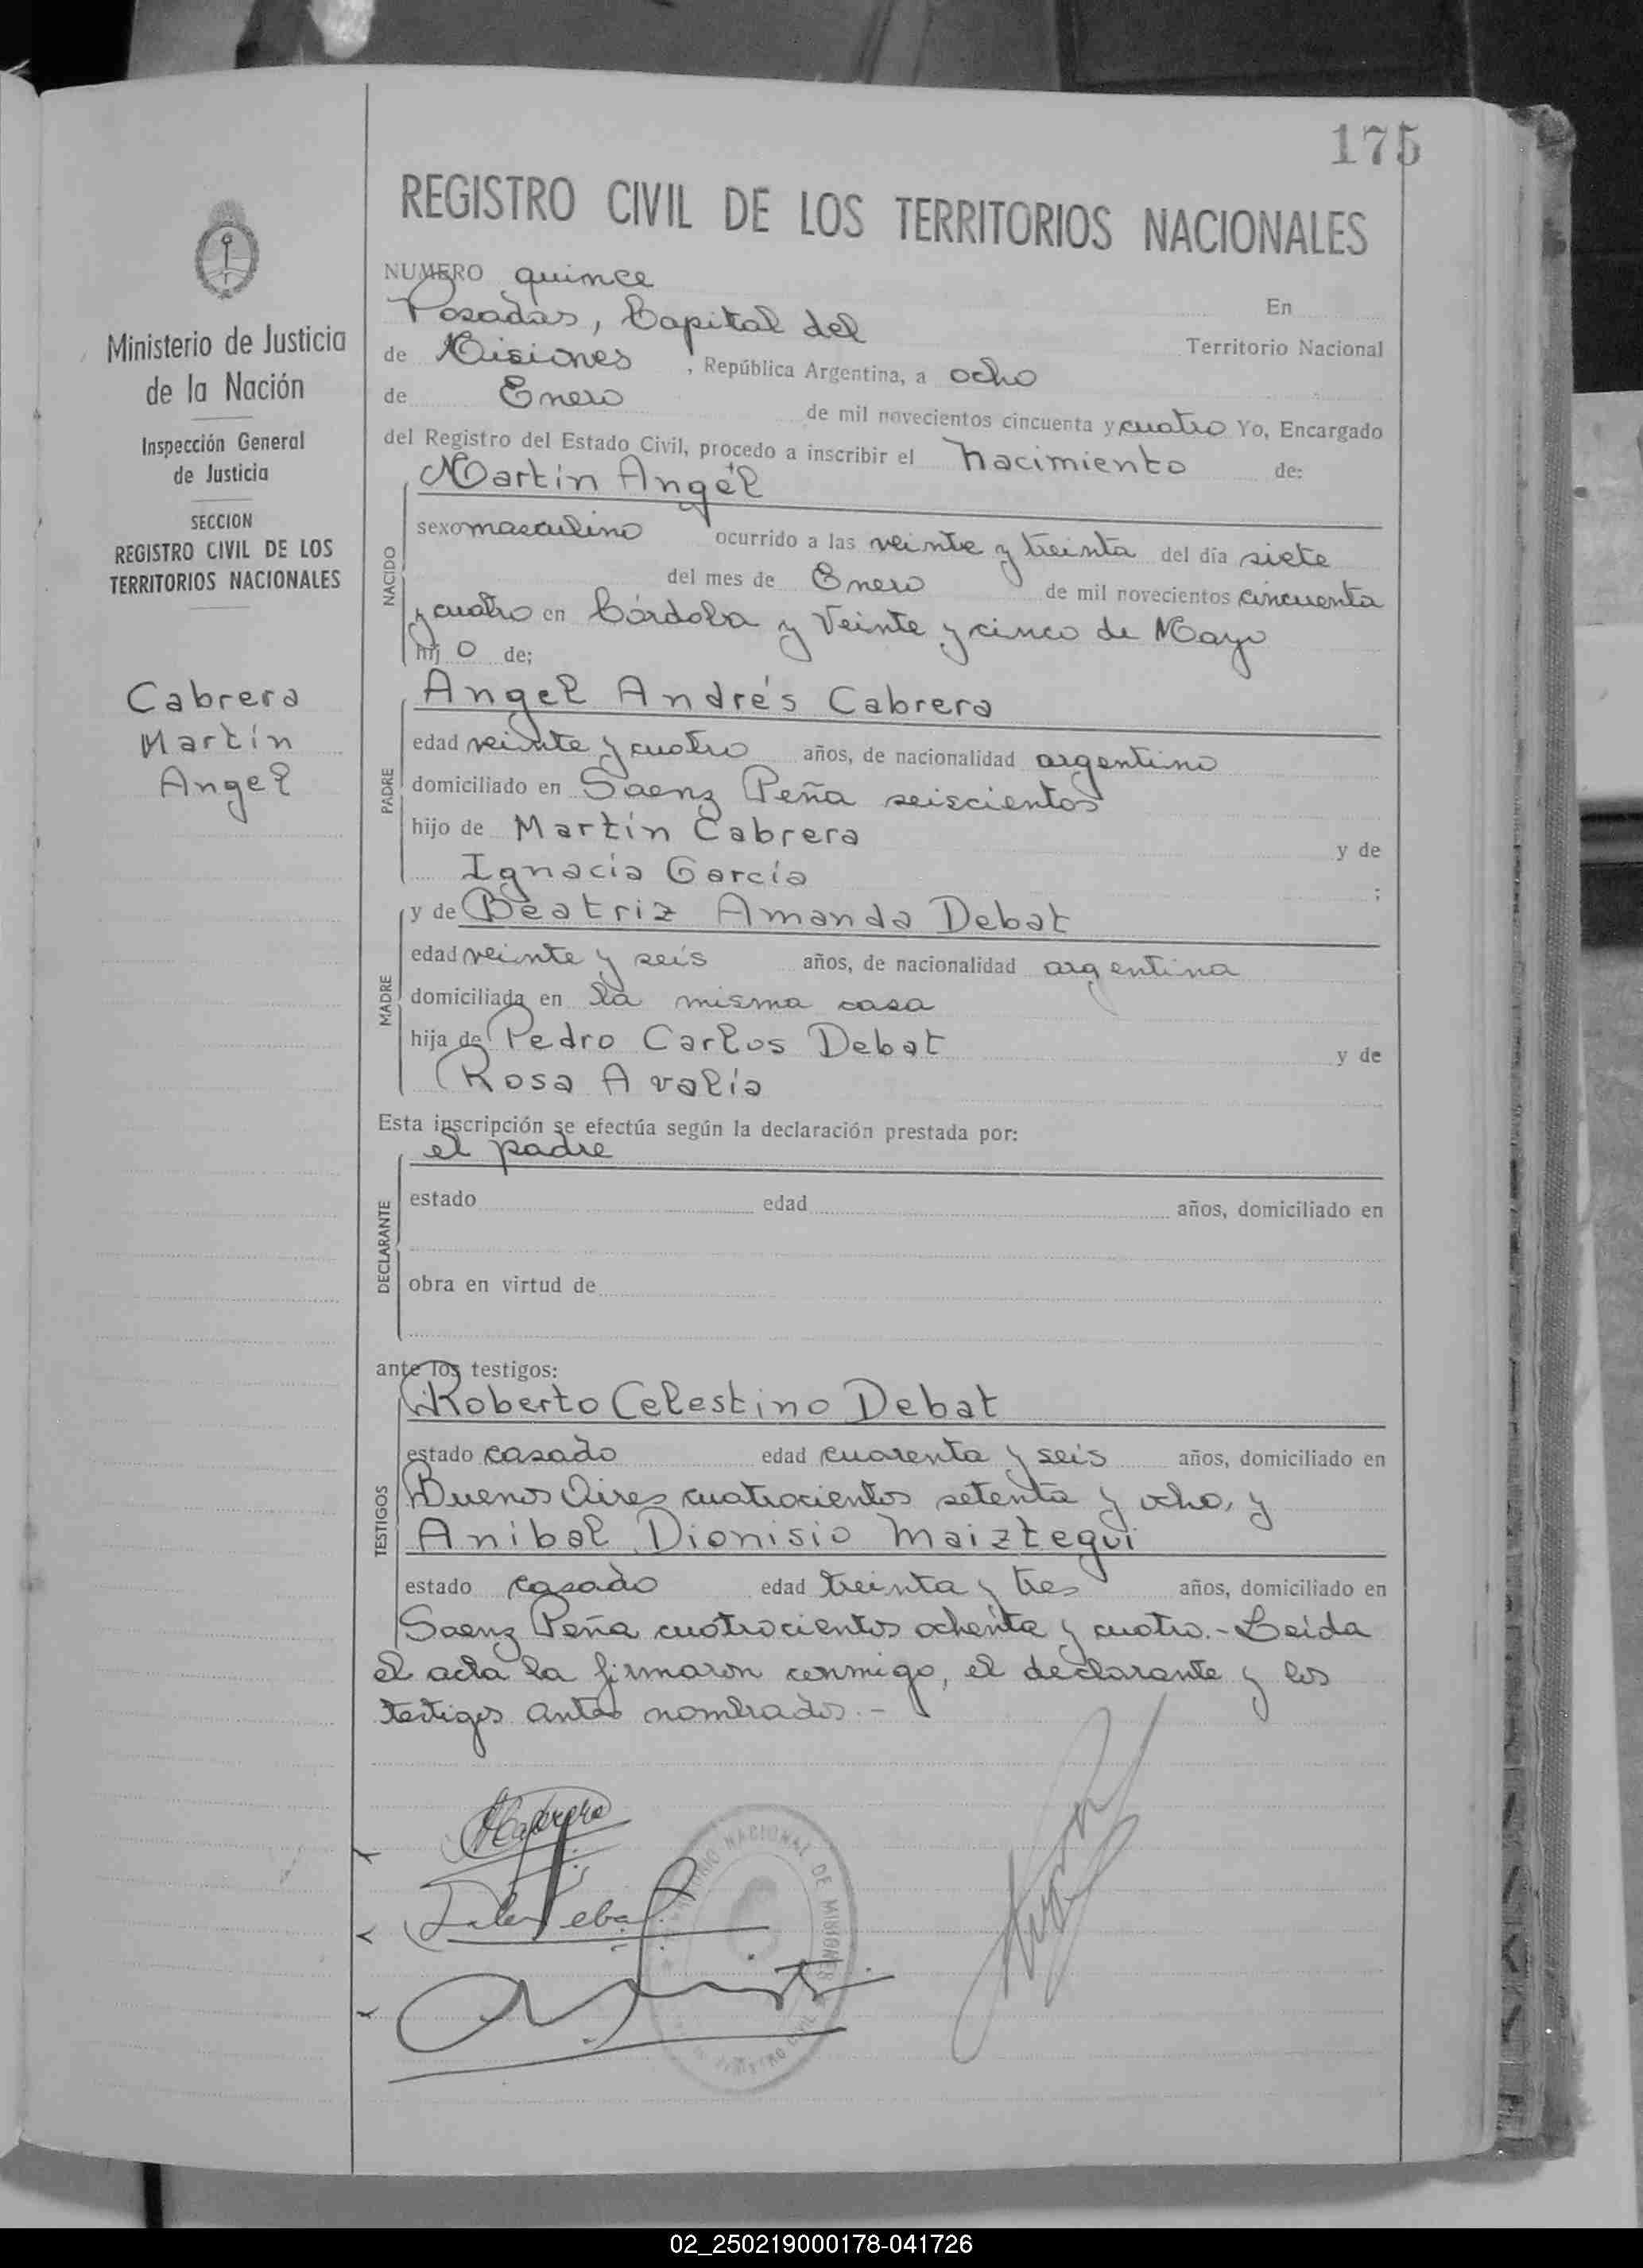 175
REGISTRO CIVIL DE LOS TERRITORIOS NACIONALES
Ministerio de Justicia
de la Nación
Inspección General
de Justicia
SECCION
REGISTRO CIVIL DE LOS
TERRITORIOS NACIONALES
Cabrera
Martín
Angel
NUMERO quince
En
Posadas, Capital del
Territorio Nacional
de Misiones, República Argentina, a ocho
de Enero de mil novecientos cincuenta y cuatro Yo, Encargado
del Registro del Estado Civil, procedo a inscribir el nacimiento de:
Martín Angel
NACIDO
sexo masculino ocurrido a las veinte y treinta del día siete
del mes de Enero de mil novecientos cincuenta
y cuatro en Córdoba y Veinte y cinco de Mayo
hij o de;
Angel Andrés Cabrera
PADRE
edad veinte y cuatro años, de nacionalidad argentino
domiciliado en Saenz Peña seiscientos
hijo de Martín Cabrera y de
Ignacia García ;
y de Beatriz Amanda Debat
MADRE
edad veinte y seis años, de nacionalidad argentina
domiciliada en la misma casa
hija de Pedro Carlos Debat y de
Rosa Avalía
Esta inscripción se efectúa según la declaración prestada por:
el padre
DECLARANTE
estado edad años, domiciliado en
obra en virtud de
ante los testigos:
Roberto Celestino Debat
TESTIGOS
estado casado edad cuarenta y seis años, domiciliado en
Buenos Aires cuatrocientos setenta y ocho, y
Anibal Dionisio Maiztegui
estado casado edad treinta y tres años, domiciliado en
Saenz Peña cuatrocientos ochenta y cuatro.- Leída
el acta la firmaron conmigo, el declarante y los
testigos antes nombrados.-
NACIONAL DE MISIONES
REGISTRO CIVIL
02_250219000178-041726